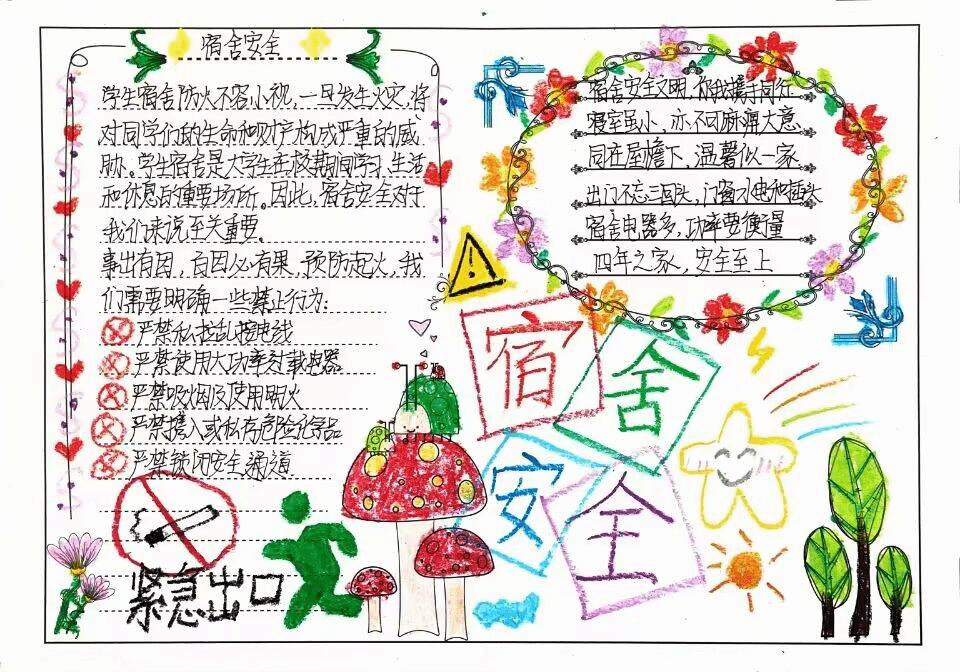 宿舍安全
学生宿舍防火不容小视，一旦发生火灾，将
对同学们的生命和财产构成严重的威
胁。学生宿舍是大学生在校期间学习、生活
和休息的重要场所。因此，宿舍安全对于
我们来说至关重要。
事出有因，有因必有果，预防起火，我
们需要明确一些禁止行为：
严禁私拉乱接电线
严禁使用大功率过载电器
严禁吸烟及使用明火
严禁携入或私存危险化学品
严禁锁闭安全通道
紧急出口
宿舍安全文明，你我携手同行
寝室虽小，亦不可麻痹大意
同在屋檐下，温馨似一家
出门不忘三回头，门窗水电和插头
宿舍电器多，功率要衡量
四年之家，安全至上
宿舍
安全